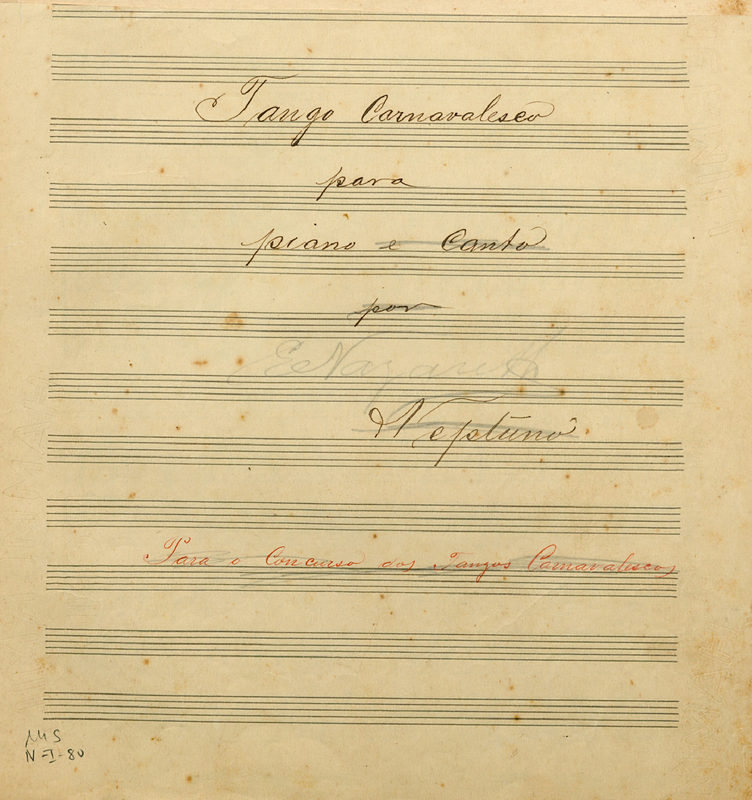 Tango Carnavalesco
para
piano e Canto
por
E Nazareth
Neptuno
Para o Concurso dos Tangos Carnavalescos
MS
N-I-80